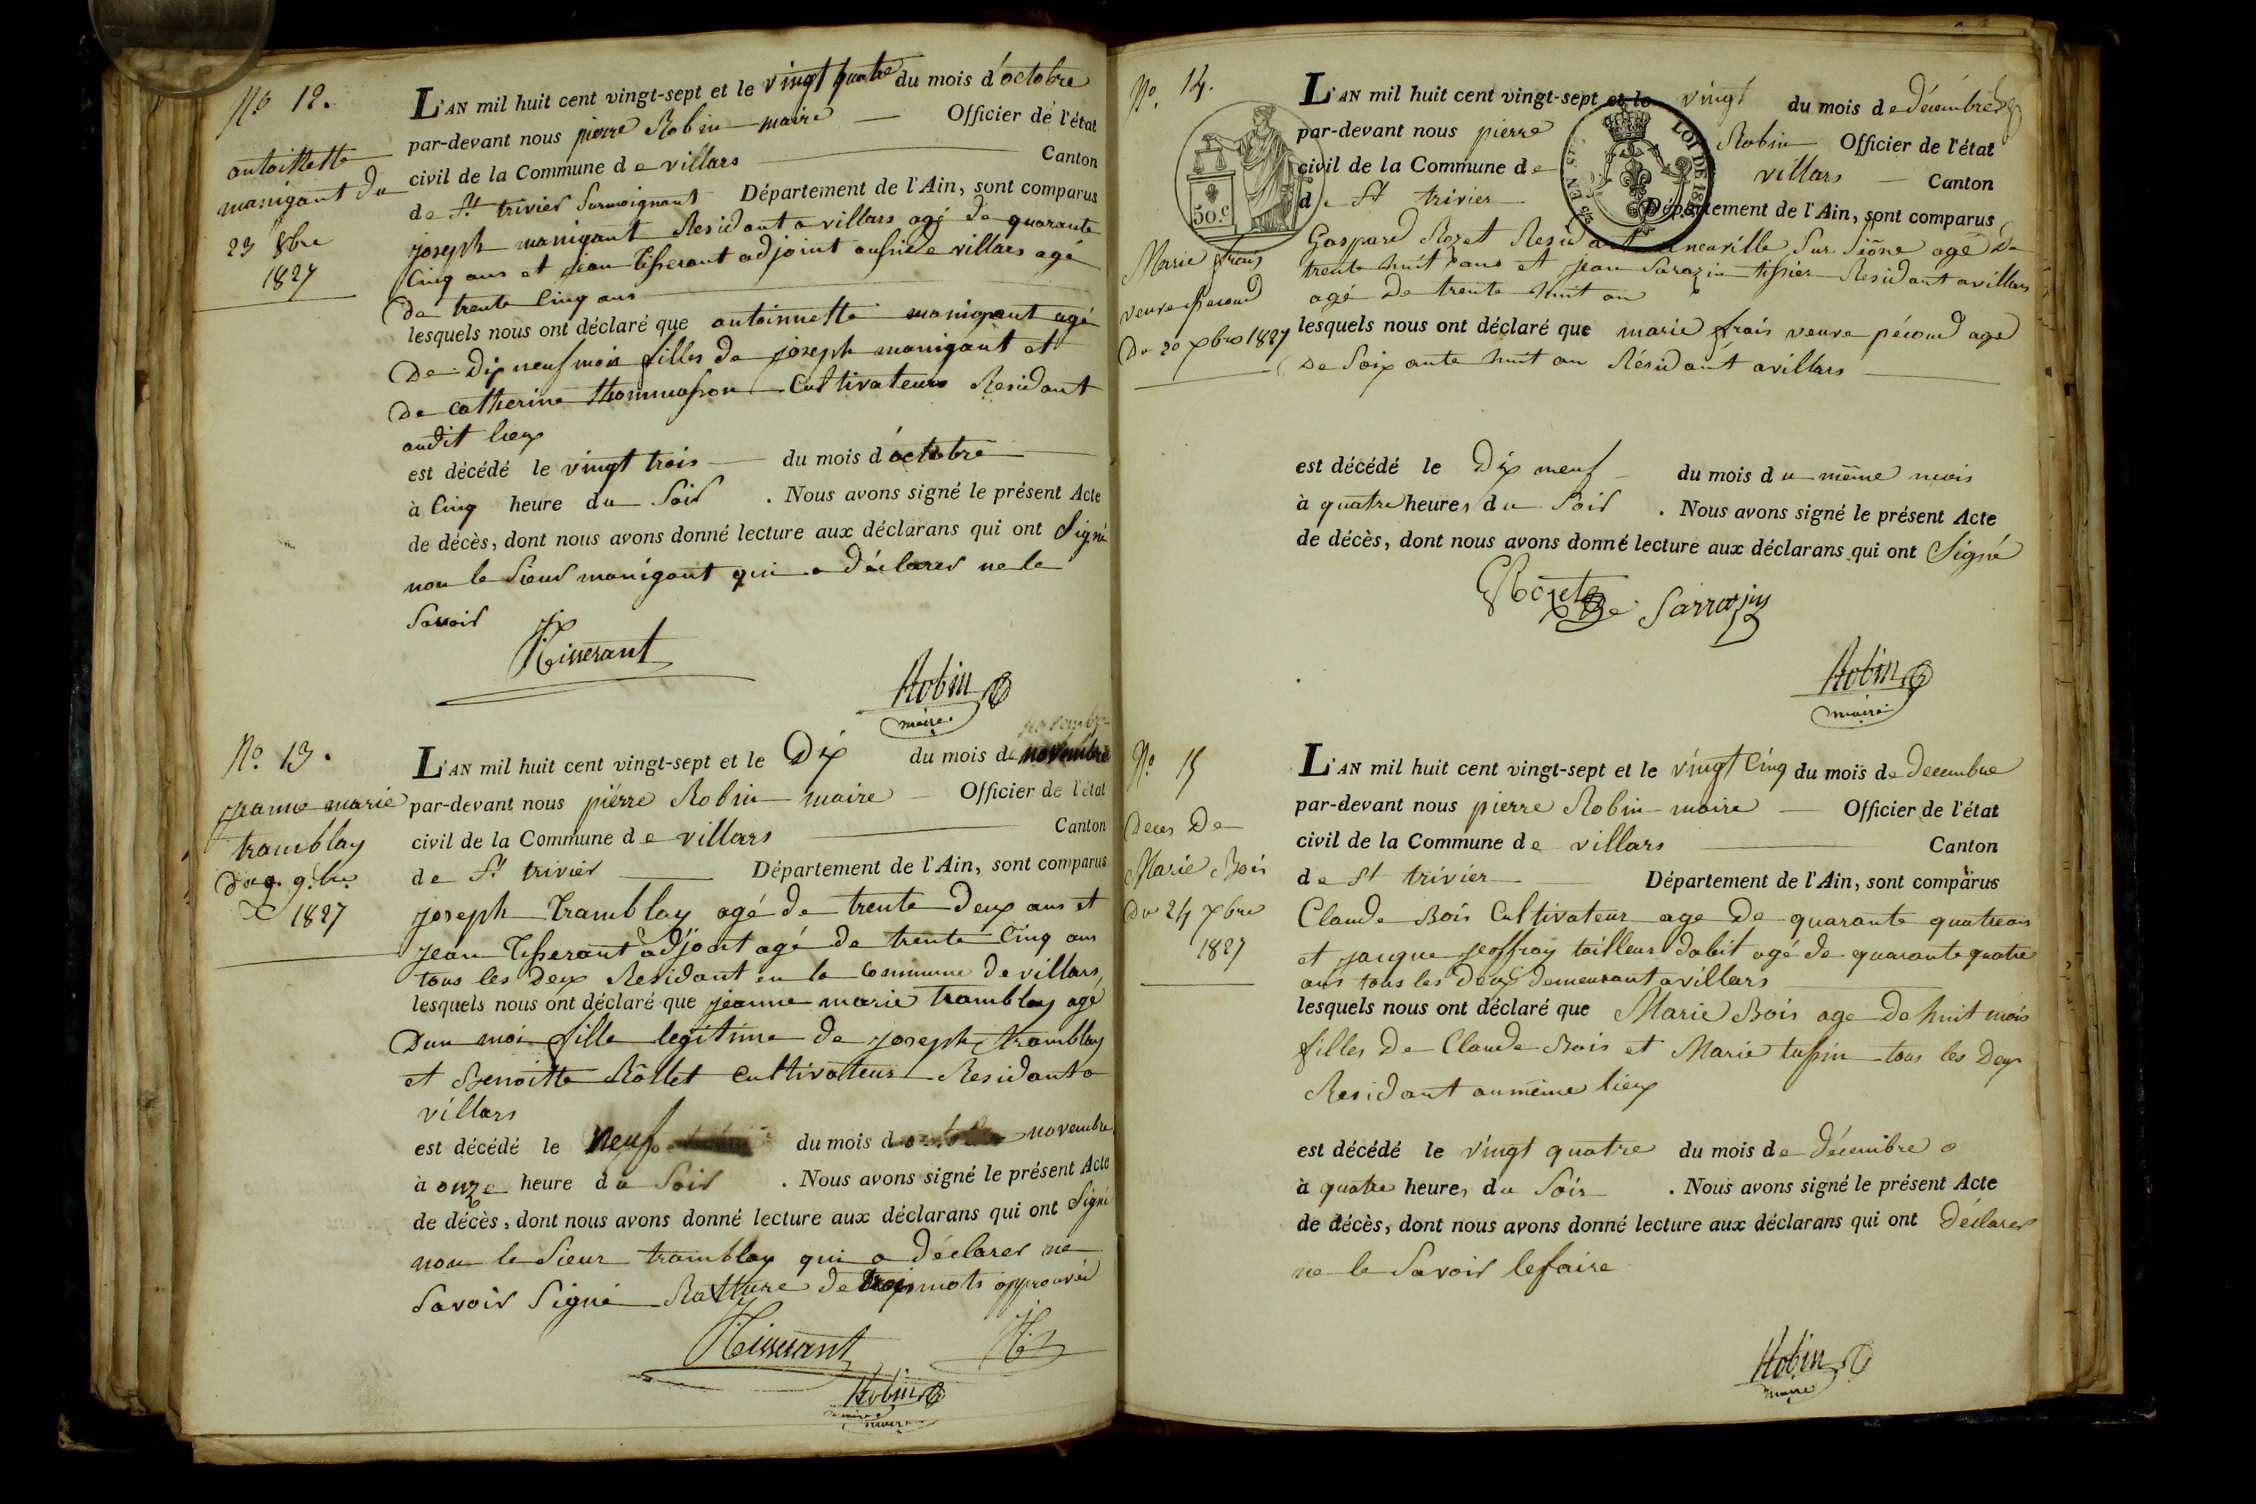 No 12.
antoinette
manigant du
23 8bre
1827
L'AN mil huit cent vingt-sept et le vingt quatre du mois d'octobre
par-devant nous pierre Robin maire Officier de l'état
civil de la Commune de villars Canton
de St. trivier Surmoignant Département de l'Ain, sont comparus
joseph manigant Residant a villars agé de quarante
Cinq ans et jean tisserant adjoint aussi de villars agé
De trente Cinq ans
lesquels nous ont déclaré que antoinnette manigant agé
De Dix neuf mois filles de joseph manigant et
De catherine thommasson Cultivateurs Residant
audit lieux
est décédé le vingt trois du mois d'octobre
à Cinq heure du Soir. Nous avons signé le présent Acte
de décès, dont nous avons donné lecture aux déclarans qui ont Signé
non le Sieur manigant qui a déclarer ne le
Savoir
Tisserant
Robin
maire
No. 13.
jeanne marie
tramblay
Du 9. 9.bre
1827
L'AN mil huit cent vingt-sept et le Dix du mois de novembre
par-devant nous pierre Robin maire Officier de l'état
civil de la Commune de villars Canton
de St. trivier Département de l'Ain, sont comparus
joseph tramblay agé de trente Deux ans et
jean tisserant adjoint agé de trente Cinq ans
tous les Deux Residant en la Commune De villars
lesquels nous ont déclaré que jeanne marie tramblay agé
Dun moi fille legitime de joseph tramblay
et Benoitte Rollet Cultivateur Residant a
villars
est décédé le neuf du mois de novembre
à onze heure du Soir. Nous avons signé le présent Acte
de décès, dont nous avons donné lecture aux déclarans qui ont Signé
non le Sieur tramblay qui a déclarer ne
Savoir Signé Ratture de mots approuvée
Tisserant
Robin
maire
No. 14.
Marie frais
veuve pecoud
Du 20 xbre 1827
50.c
LOI DE 18
L'AN mil huit cent vingt-sept et le vingt du mois de décembre
par-devant nous pierre Robin Officier de l'état
civil de la Commune de villars Canton
de St trivier Département de l'Ain, sont comparus
Gaspard Rozet Residant a neuville Sur Sione agé De
trente huit ans et jean Sarazin tissier Residant a villars
agé De trente huit an
lesquels nous ont déclaré que marie frais veuve pécoud age
De Soixante huit an Résidant a villars
est décédé le Dix neuf du mois du même mois
à quatre heures du Soir. Nous avons signé le présent Acte
de décès, dont nous avons donné lecture aux déclarans qui ont Signé
Sarrazin
Robin
maire
No. 15
Deces De
Marie Bois
Du 24 xbre
1827
L'AN mil huit cent vingt-sept et le vingt Cinq du mois de decembre
par-devant nous pierre Robin maire Officier de l'état
civil de la Commune de villars Canton
de St trivier Département de l'Ain, sont comparus
Claude Bois Cultivateur age De quarante quatre ans
et jacque jeoffray tailleur dabit agé de quarante quatre
ans tous les Deux Demeurant a villars
lesquels nous ont déclaré que Marie Bois age De huit mois
filles De Claude Bois et Marie tupin tous les Deux
Residant au même lieux
est décédé le vingt quatre du mois de décembre
à quatre heures du Soir. Nous avons signé le présent Acte
de décès, dont nous avons donné lecture aux déclarans qui ont Déclarer
ne le Savoir le faire
Robin
maire